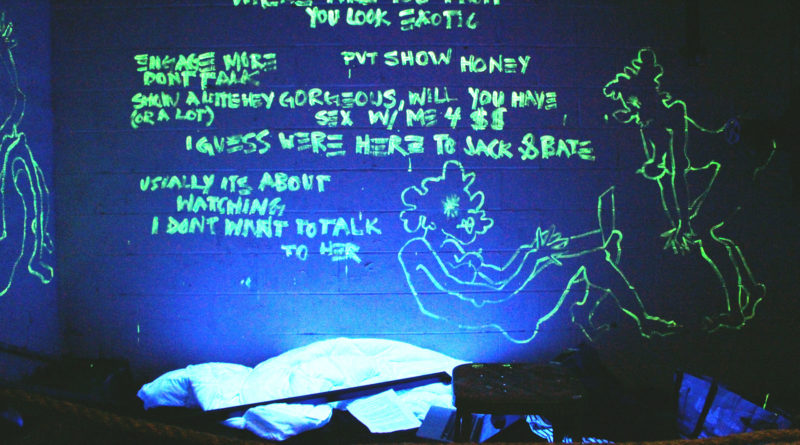 YOU LOOK EXOTIC
ENGAGE MORE
DONT TALK
PVT SHOW HONEY
SHOW A LITTE
(OR A LOT)
HEY GORGEOUS, WILL YOU HAVE
SEX W/ ME 4 $$
I GUESS WERE HERE TO JACK & BATE
USUALLY ITS ABOUT
WATCHING
I DONT WANT TO TALK
TO HER